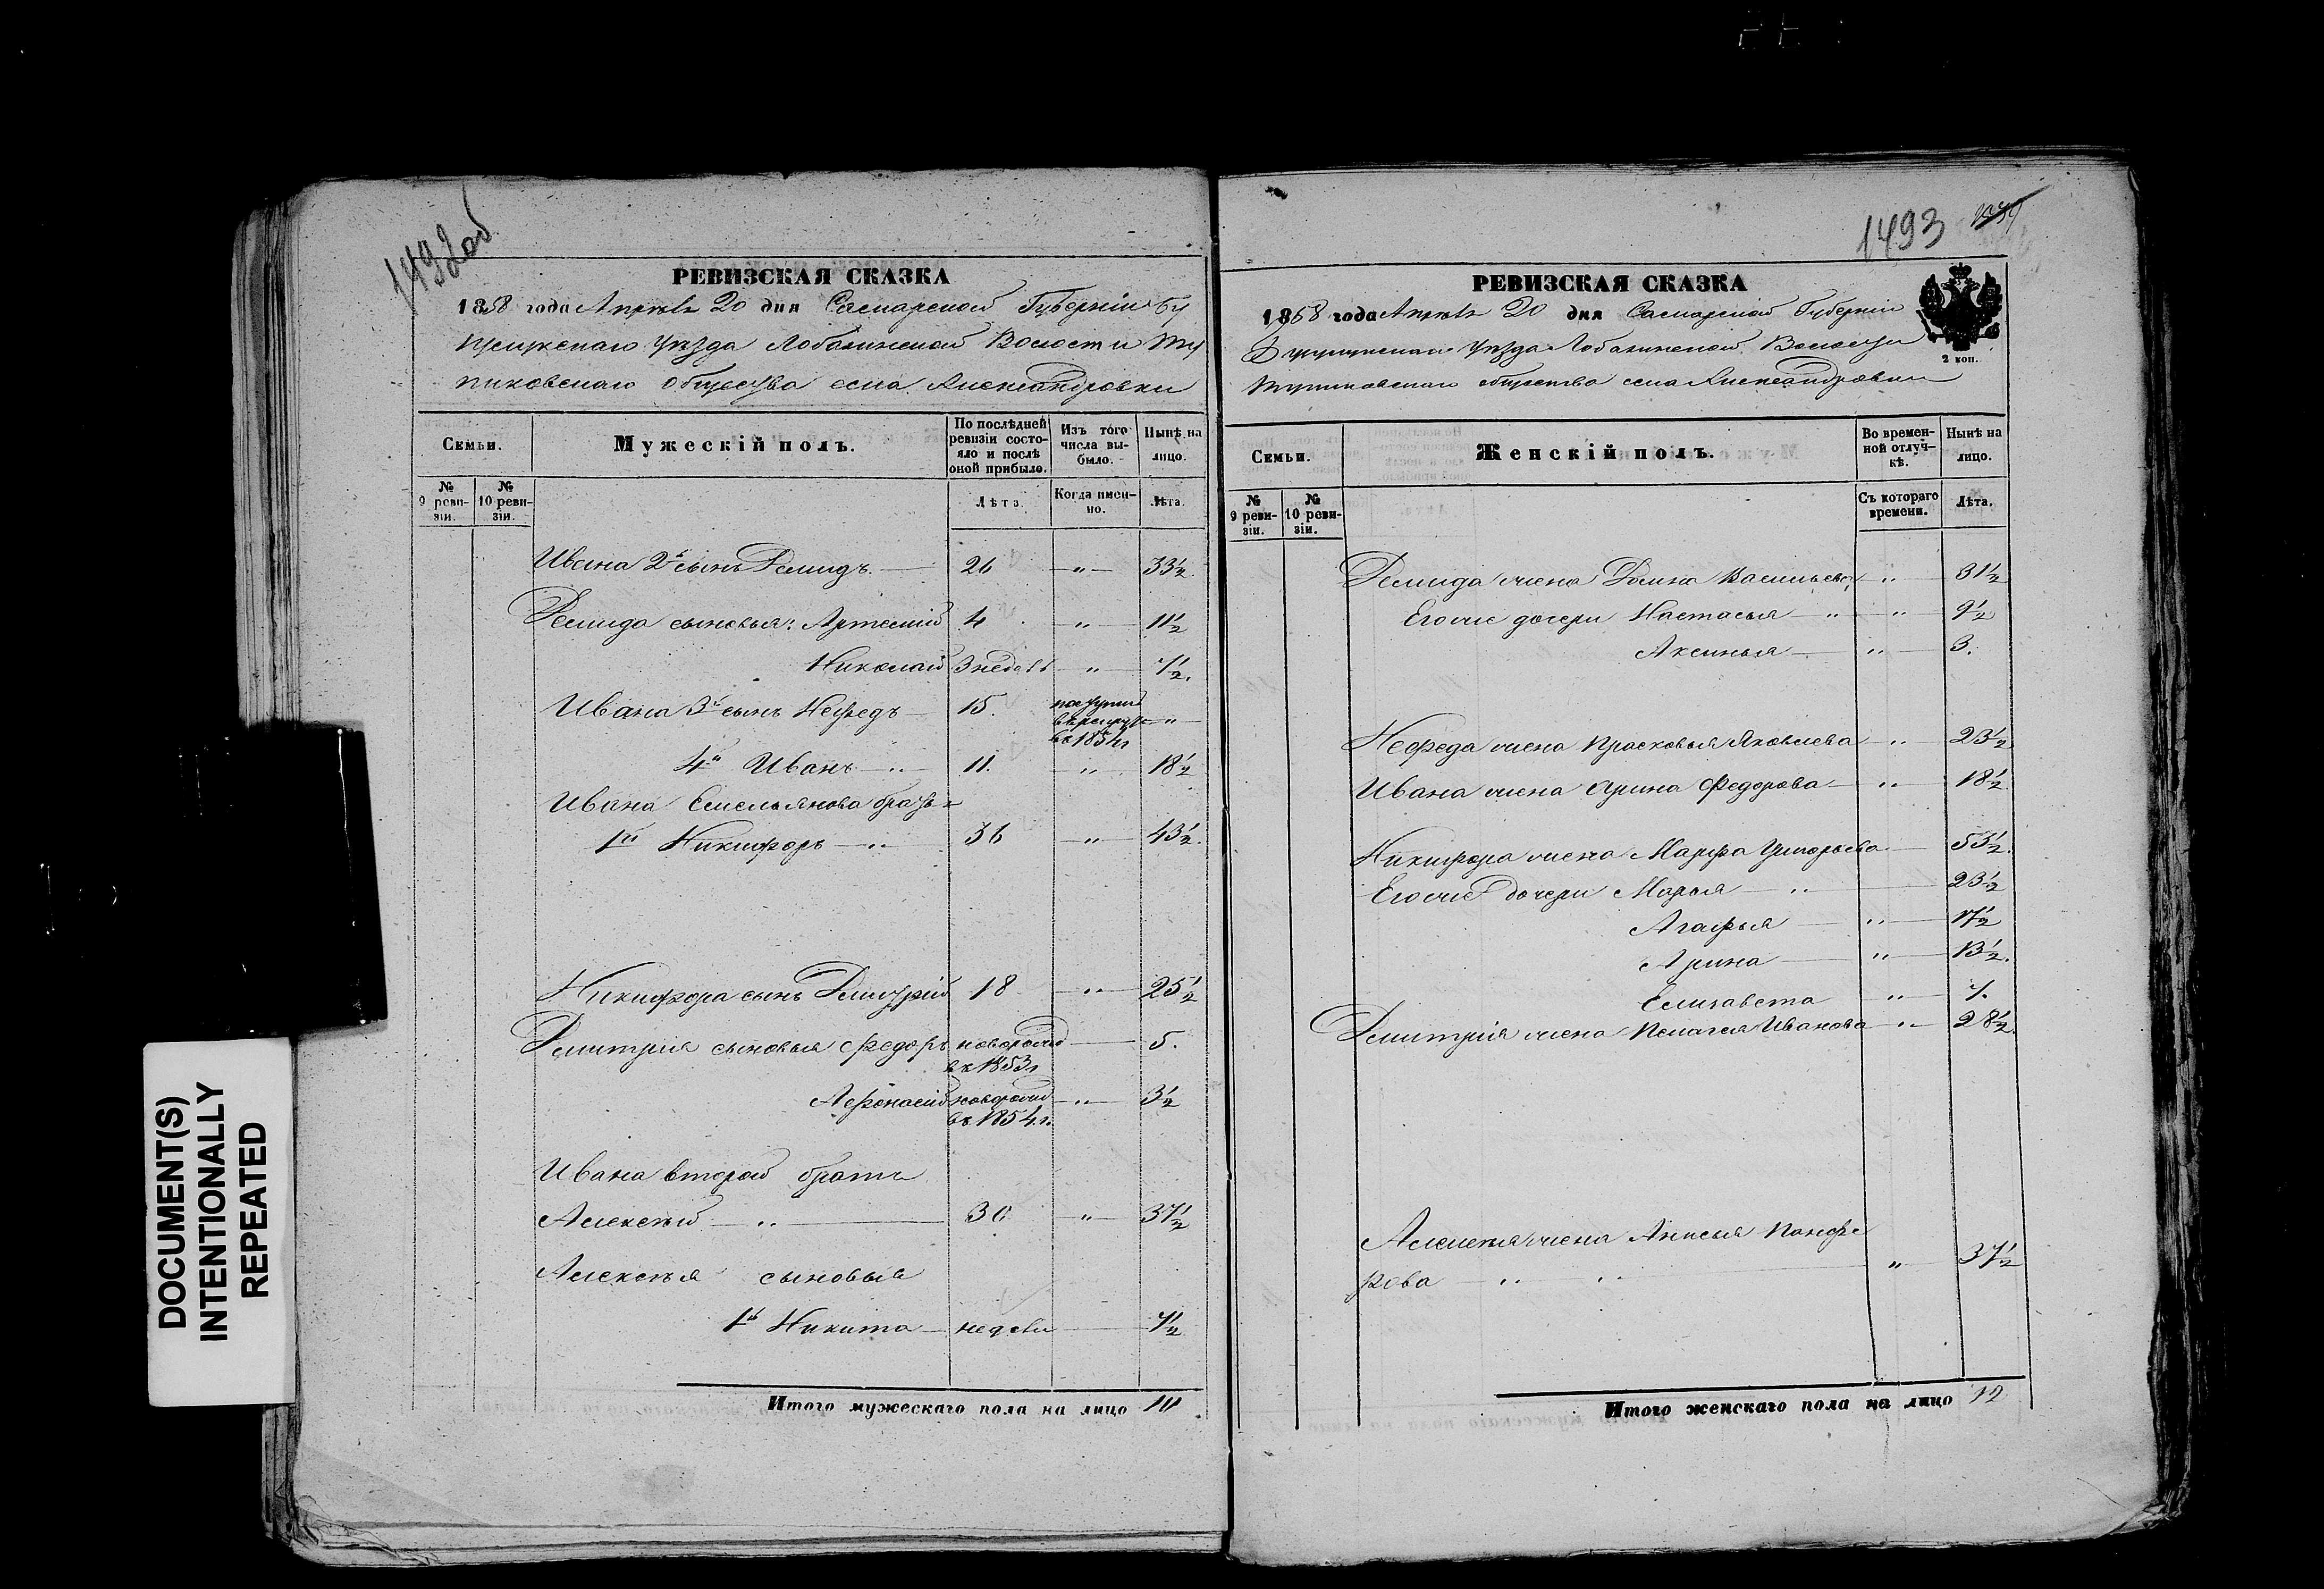 DOCUMENT(S)
INTENTIONALLY
REPEATED
1492об
РЕВИЗСКАЯ СКАЗКА
1858 года Апрѣля 20 дня Самарской Губерніи Бу
Уѣзда Лобазинской Волости
общества села Александровки
Семьи.
Мужескій полъ.
По послѣдней ревизіи состояло и послѣ оной прибыло.
Изъ того числа выбыло.
Нынѣ на лицо.
№ 9 ревизіи.
№ 10 ревизіи.
Лѣта.
Когда именно.
Лѣта.
Ивана 2й сынъ Демидъ — 26 — " — 33½
Демида сыновья: Артемій 4 " — 11½
Николай 3 недѣл " — 7½.
Ивана 3й сынъ Нефедъ — 15. поступил в рекруты в 1854 г "
4й Иванъ — " — 11. — " — 18½
Ивана Емельянова братья
1й Никифоръ — " — 36 — " — 43½.
Никифора сынъ Дмитрій 18 — " — 25½
Дмитрія сыновья Федоръ новорожд в 1853 г — 5.
Афонасий новорожд въ 1854 г. — " — 3½
Ивана второй братъ
Алексѣй — " — 30 " — 37½
Алексѣя сыновья
1й Никита — недѣли — 7½
Итого мужескаго пола на лицо 10
1493
РЕВИЗСКАЯ СКАЗКА
1858 года Апрѣля 20 дня Самарской Губерніи
Уѣзда Лобазинской Волости
общества села Александровки
2 коп.
Семьи.
Женскій полъ.
Во временной отлучкѣ.
Нынѣ на лицо.
№ 9 ревизіи.
№ 10 ревизіи.
Съ котораго времени.
Лѣта.
Демида жена Домна Васильева " — 31½
Его же дочери Настасья — " — " — 9½
Аксинья — " — 3.
Нефеда жена Прасковья Яковлева — " — 23½
Ивана жена Арина Федорова — " — 18½
Никифора жена Марфа Григорьева — 53½.
Его же дочери Марья — " — 23½
Агафья — " — 17½
Арина — " — 13½.
Елизавета " — 7.
Дмитрія жена Пелагея Иванова — " — 28½
Алексѣя жена Анисья Панфе
рова — " " — " — 37½
Итого женскаго пола на лицо 12